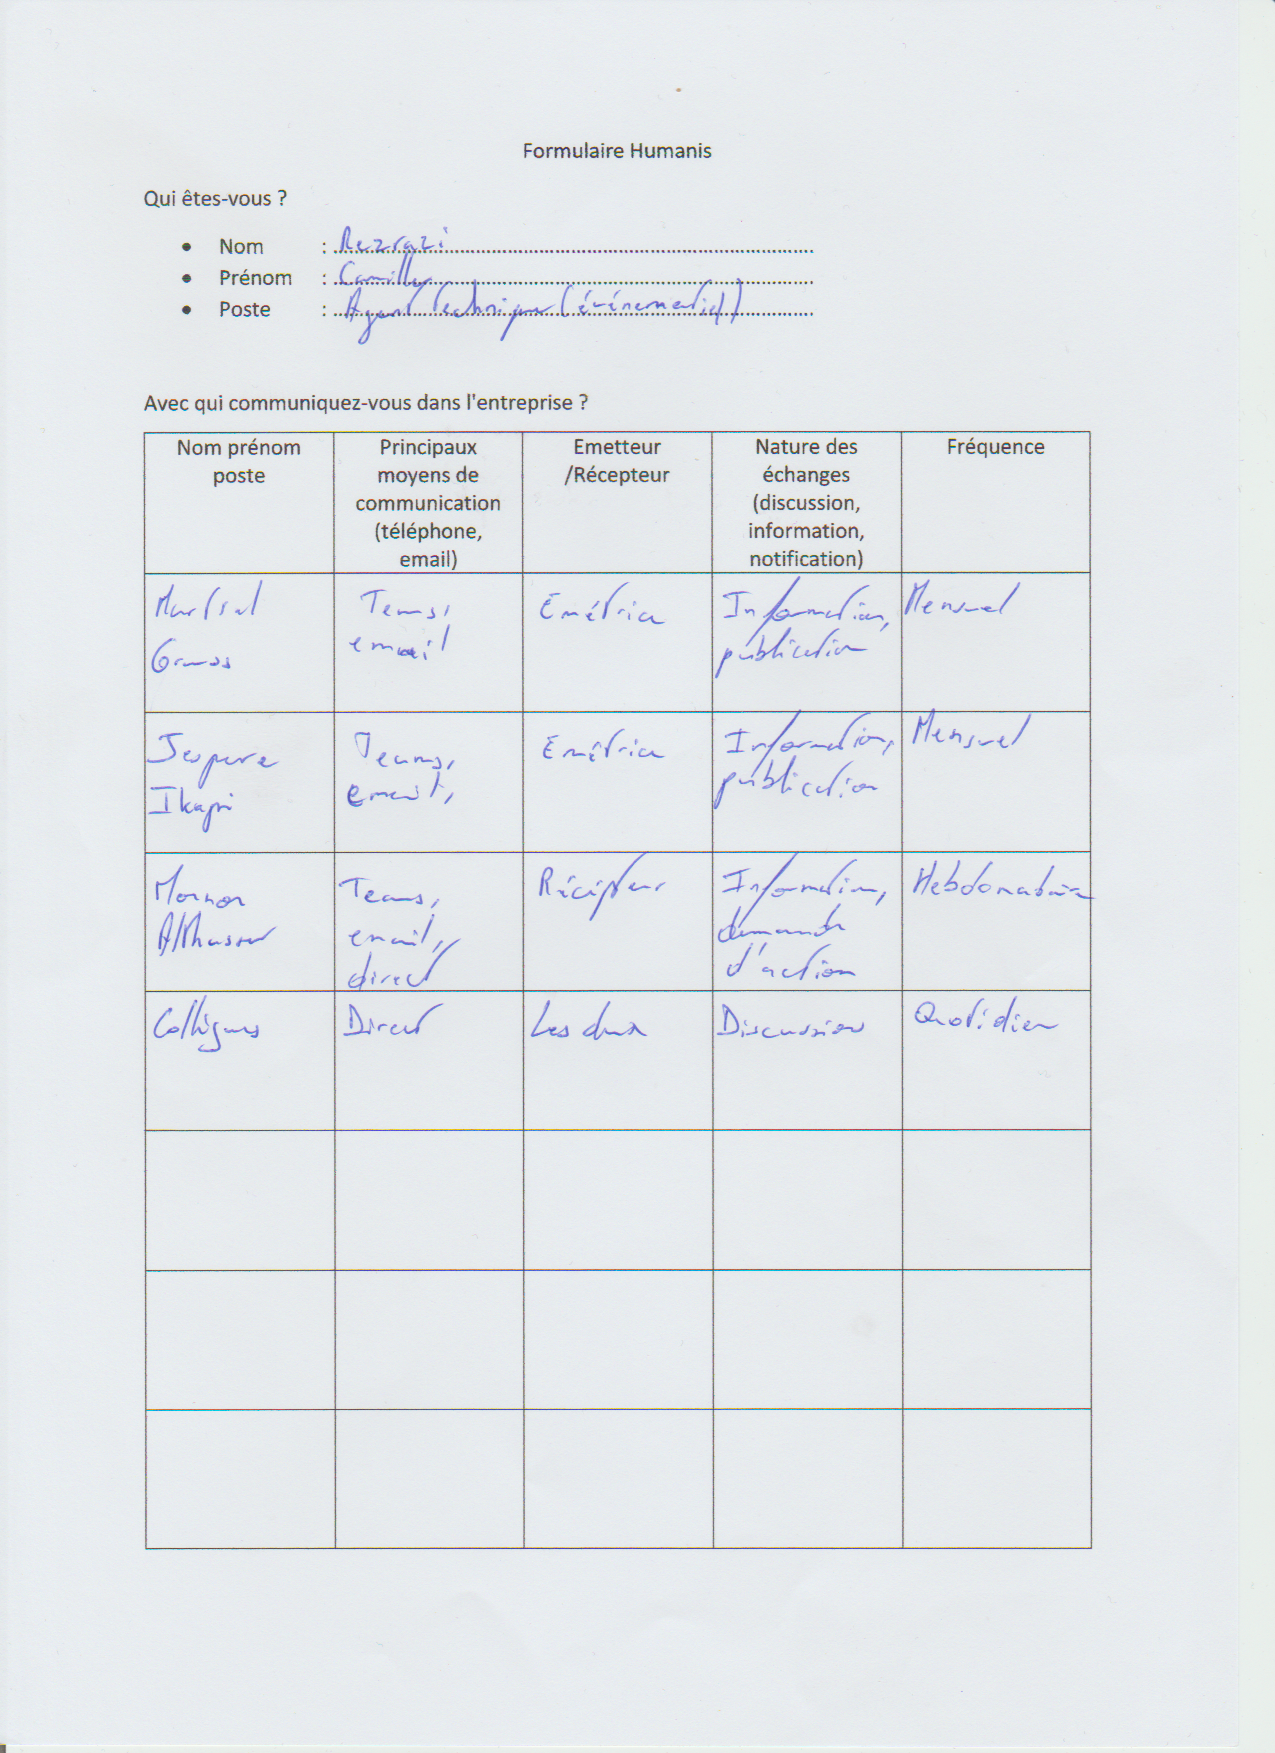 Formulaire Humanis
Qui êtes-vous ?
• Nom : Rezrazi
• Prénom : Camille
• Poste : Agent Technique (événementiel)
Avec qui communiquez-vous dans l'entreprise ?
Nom prénom
poste
Principaux
moyens de
communication
(téléphone,
email)
Emetteur
/Récepteur
Nature des
échanges
(discussion,
information,
notification)
Fréquence
Martial
Gross
Teams,
email
Emétrice
Information,
publication
Mensuel
Ikapi
Teams,
email,
Emétrice
Information,
publication
Mensuel
Althusser
Teams,
email,
direct
Récépteur
Information,
demande
d'action
Hebdomadaire
Collègues
Direct
Les deux
Discussion
Quotidien